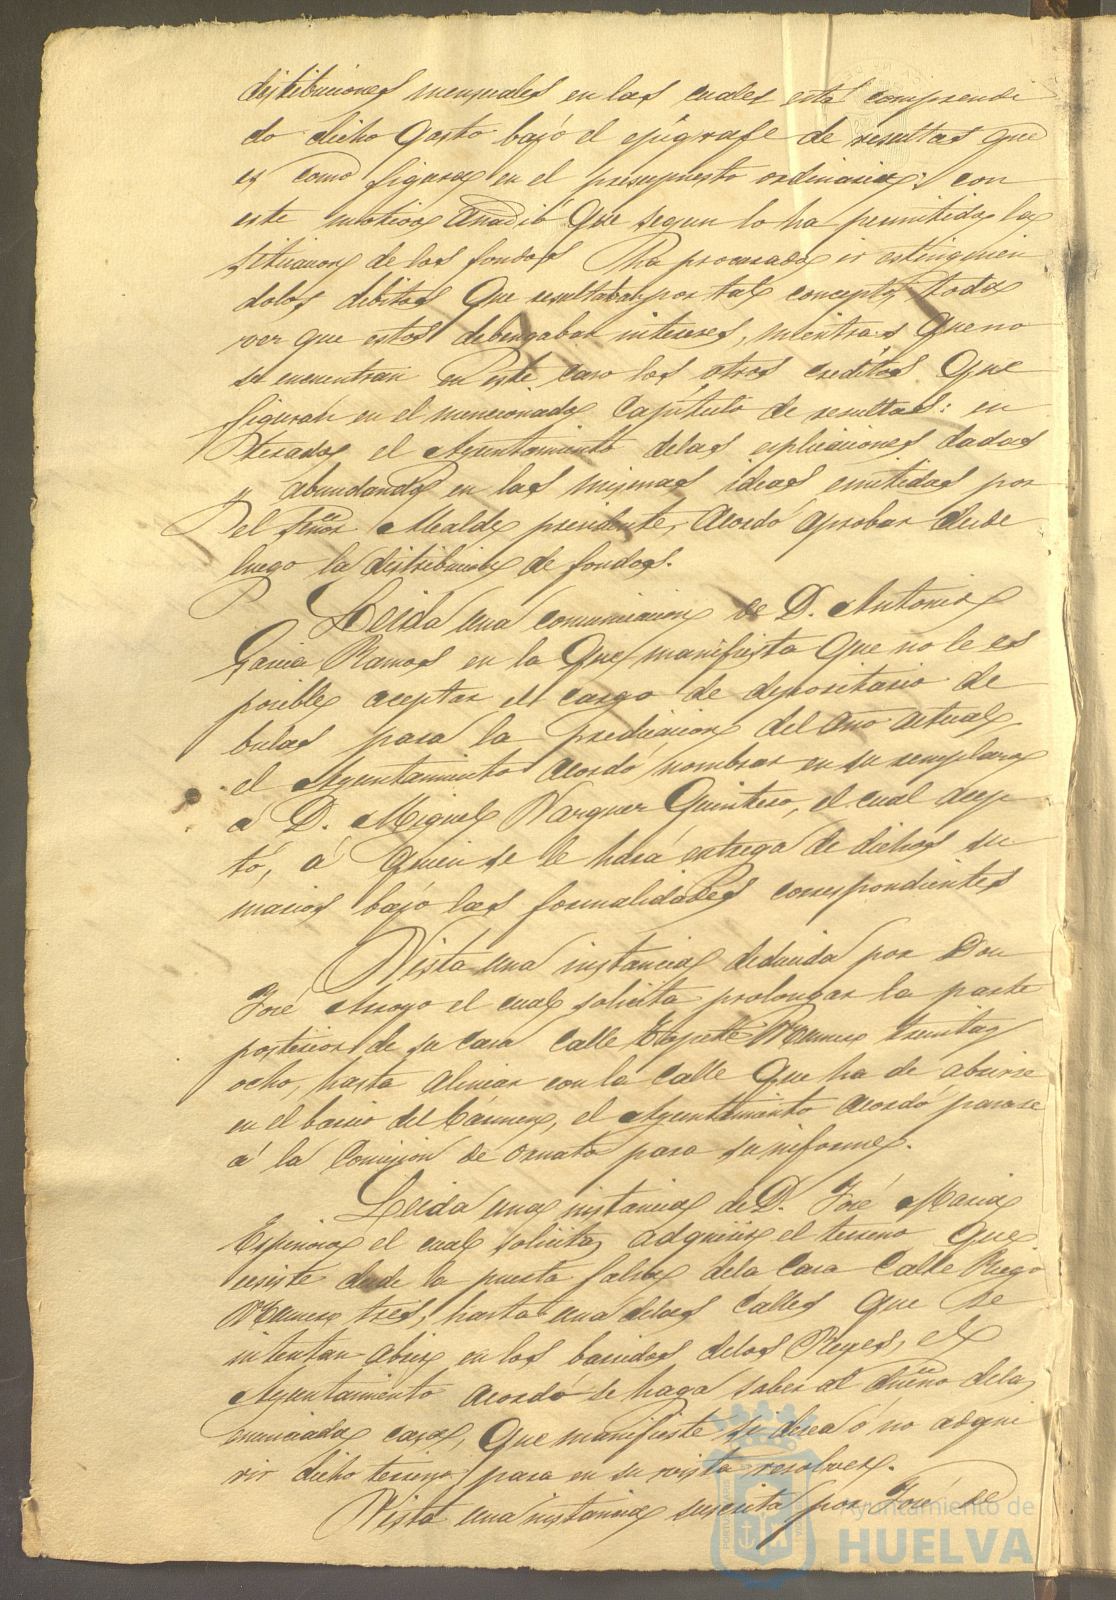 distribuciones mensuales en las cuales está comprendi
do dicho gasto bajo el epigrafe de resultas que
es como figura en el presupuesto ordinario: con
este motivo añadió que segun lo ha permitido la
situacion de los fondos ha procurado ir estinguien
dolos debitos que resultaban por tal concepto, toda
vez que estos debengaban intereses, mientras que no
se encuentran en este caso los otros creditos que
figuran en el mencionado Capitulo de resultas: en
terado el Ayuntamiento delas esplicaciones dadas
y abundando en las mismas ideas emitidas por
el Señor Alcalde presidente, acordó aprobar desde
luego la distribucion de fondos.
Leida una comunicacion de D. Antonio
Garcia Ramos en la que manifiesta que no le es
posible aceptar el cargo de depositario de
bulas para la predicacion del año actual
el Ayuntamiento acordó nombrar en su remplazo
á D. Miguel Vazquez Quintero, el cual acep
tó, á quien se le hará entrega de dichos su
marios bajo las formalidades correspondientes
Vista una instancia deducida por Don
José Arroyo el cual solicita prolongar la parte
posterior de su casa calle numero treinta y
ocho, hasta alinear con la calle que ha de abrirse
en el barrio del Cármen, el Ayuntamiento acordó pasarse
á la Comision de ornato para su informe.
Leida una instancia de D. José Maria
Espinosa el cual solicita adquirir el terreno que
esiste desde la puerta falsa dela Casa Calle Riego
numero tres, hasta una delas Calles que se
intentan abrir en los barridos delos Reyes, el
Ayuntamiento acordó se haga saber al dueño dela
enunciada casa, que manifieste si desea ó no adqui
rir dicho terreno para en su vista resolver.
Vista una instancia suscrita por José de
Ayuntamiento de
HUELVA